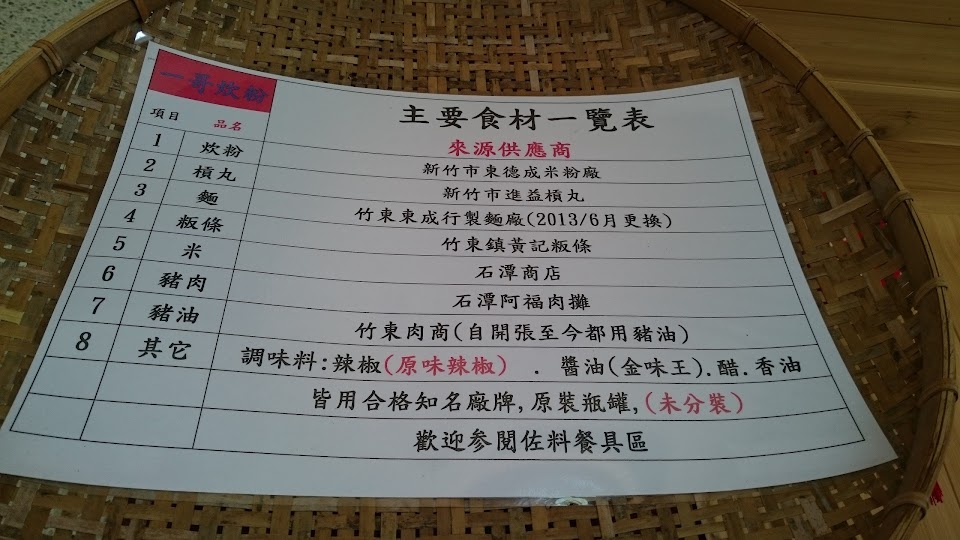 一哥炊粉
主要食材一覽表
項目 品名 來源供應商
1 炊粉 新竹市東德成米粉廠
2 摃丸 新竹市進益摃丸
3 麵 竹東東成行製麵廠(2013/6月更換)
4 粄條 竹東鎮黃記粄條
5 米 石潭商店
6 豬肉 石潭阿福肉攤
7 豬油 竹東肉商(自開張至今都用豬油)
8 其它 調味料:辣椒(原味辣椒) . 醬油(金味王).醋.香油
皆用合格知名廠牌,原裝瓶罐,(未分裝)
歡迎参閱佐料餐具區